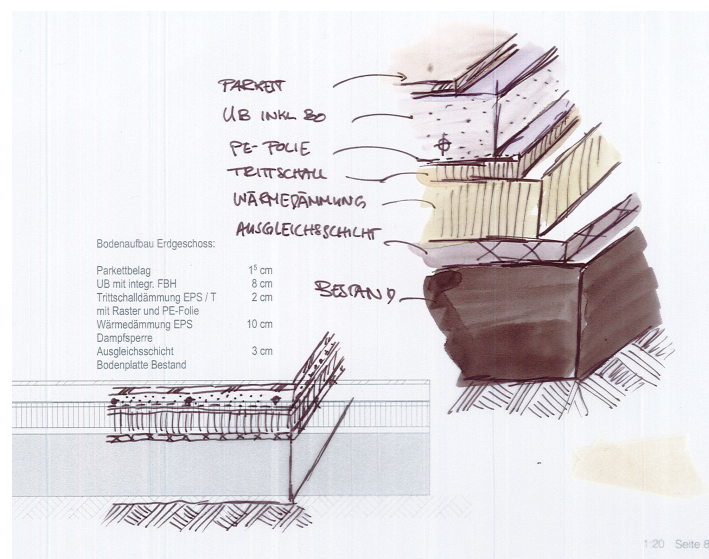 PARKETT
UB INKL BO
PE-FOLIE
TRITTSCHALL
WÄRMEDÄMMUNG
AUSGLEICHSSCHICHT
BESTAND
Bodenaufbau Erdgeschoss:
Parkettbelag 1⁵ cm
UB mit integr. FBH 8 cm
Trittschalldämmung EPS / T 2 cm
mit Raster und PE-Folie
Wärmedämmung EPS 10 cm
Dampfsperre
Ausgleichsschicht 3 cm
Bodenplatte Bestand
1:20 Seite 8